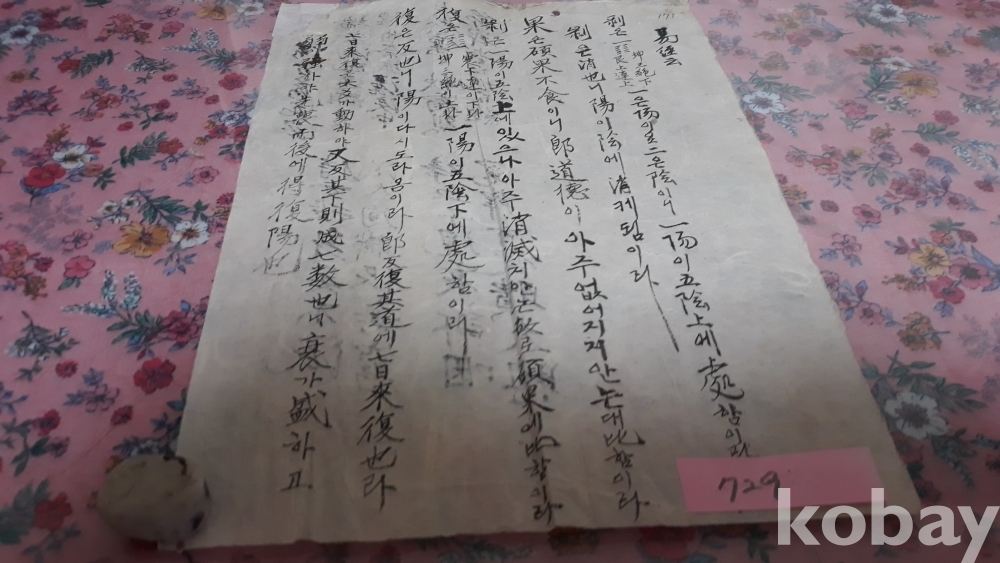 易經云
剝은 坤下艮上 一은陽이오 --은陰이니 一陽이五陰上에處함이라
剝은消也니陽이陰에消케됨이라
果는碩果不食이니卽道德이아주없어지지안는대比함이라
剝은一陽이五陰上에있으나아주消滅치안는故로碩果에比함이라
復은 震下 坤上 一陽이五陰下에處함이라
復은反也니陽이다시도라옴이라卽反復其道에七日來復也라
七日來復은 動하야 又反其下則成七數也니衰가盛하고
後에得復陽也
729
kobay